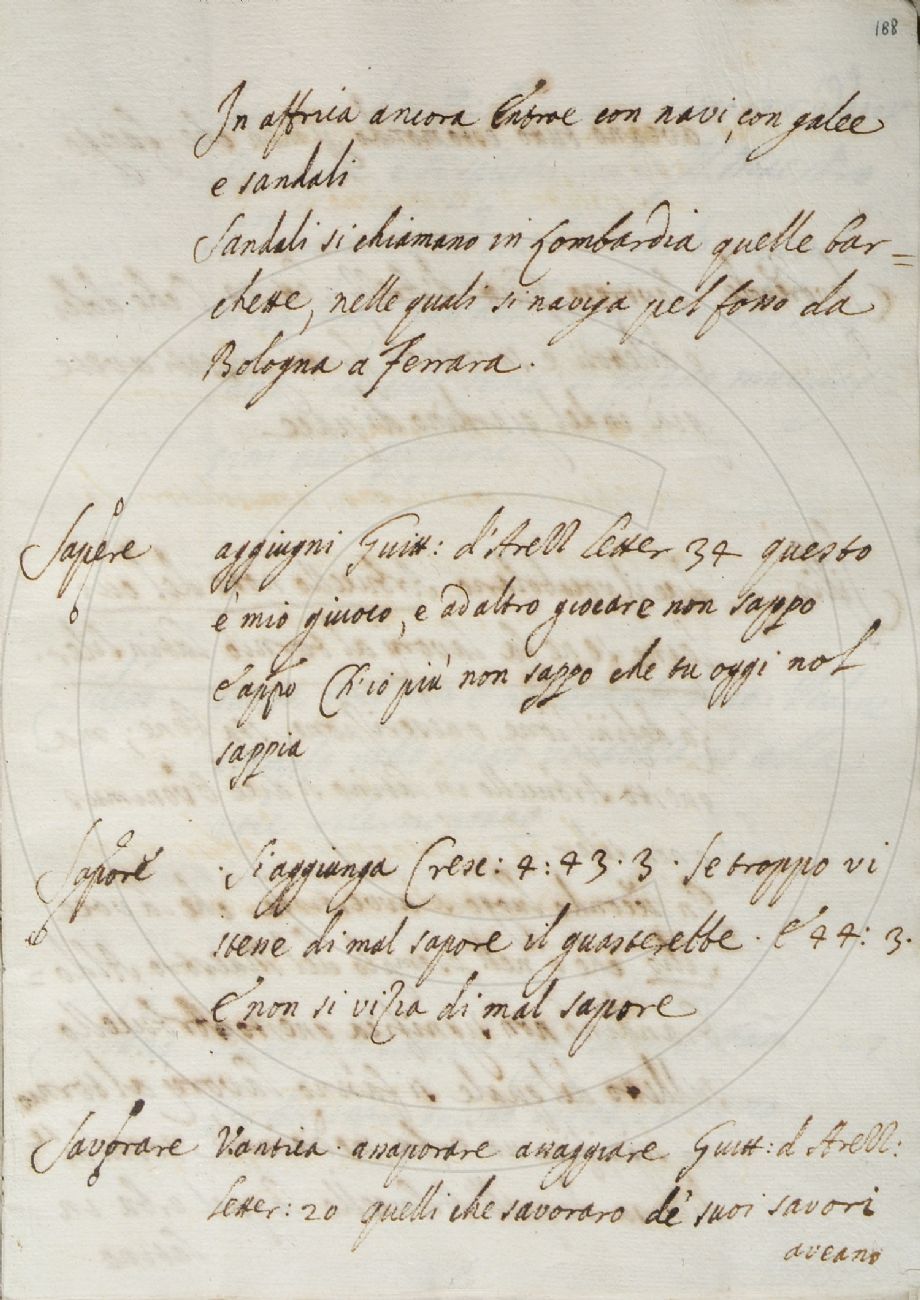 188
In affrica ancora Entroe con navi, con galee
e sandali
Sandali si chiamano in Lombardia quelle bar=
chette, nelle quali si naviga pel fosso da
Bologna a Ferrara.
Sapere aggiugni Guitt: d'Arezz Letter 34 questo
è mio giuoco, e ad altro giocare non sappo
E appo Ch'io più non sappo che tu oggi nol
sappia
Sapore Si aggiunga Cresc: 4: 43. 3. Se troppo vi
stesse di mal sapore il guasterebbe. E 44: 3.
E non si vizia di mal sapore
Savorare V. antica. assaporare assaggiare Guitt: d Arezz:
Letter: 20 quelli che savoraro de' suoi savori
aveano